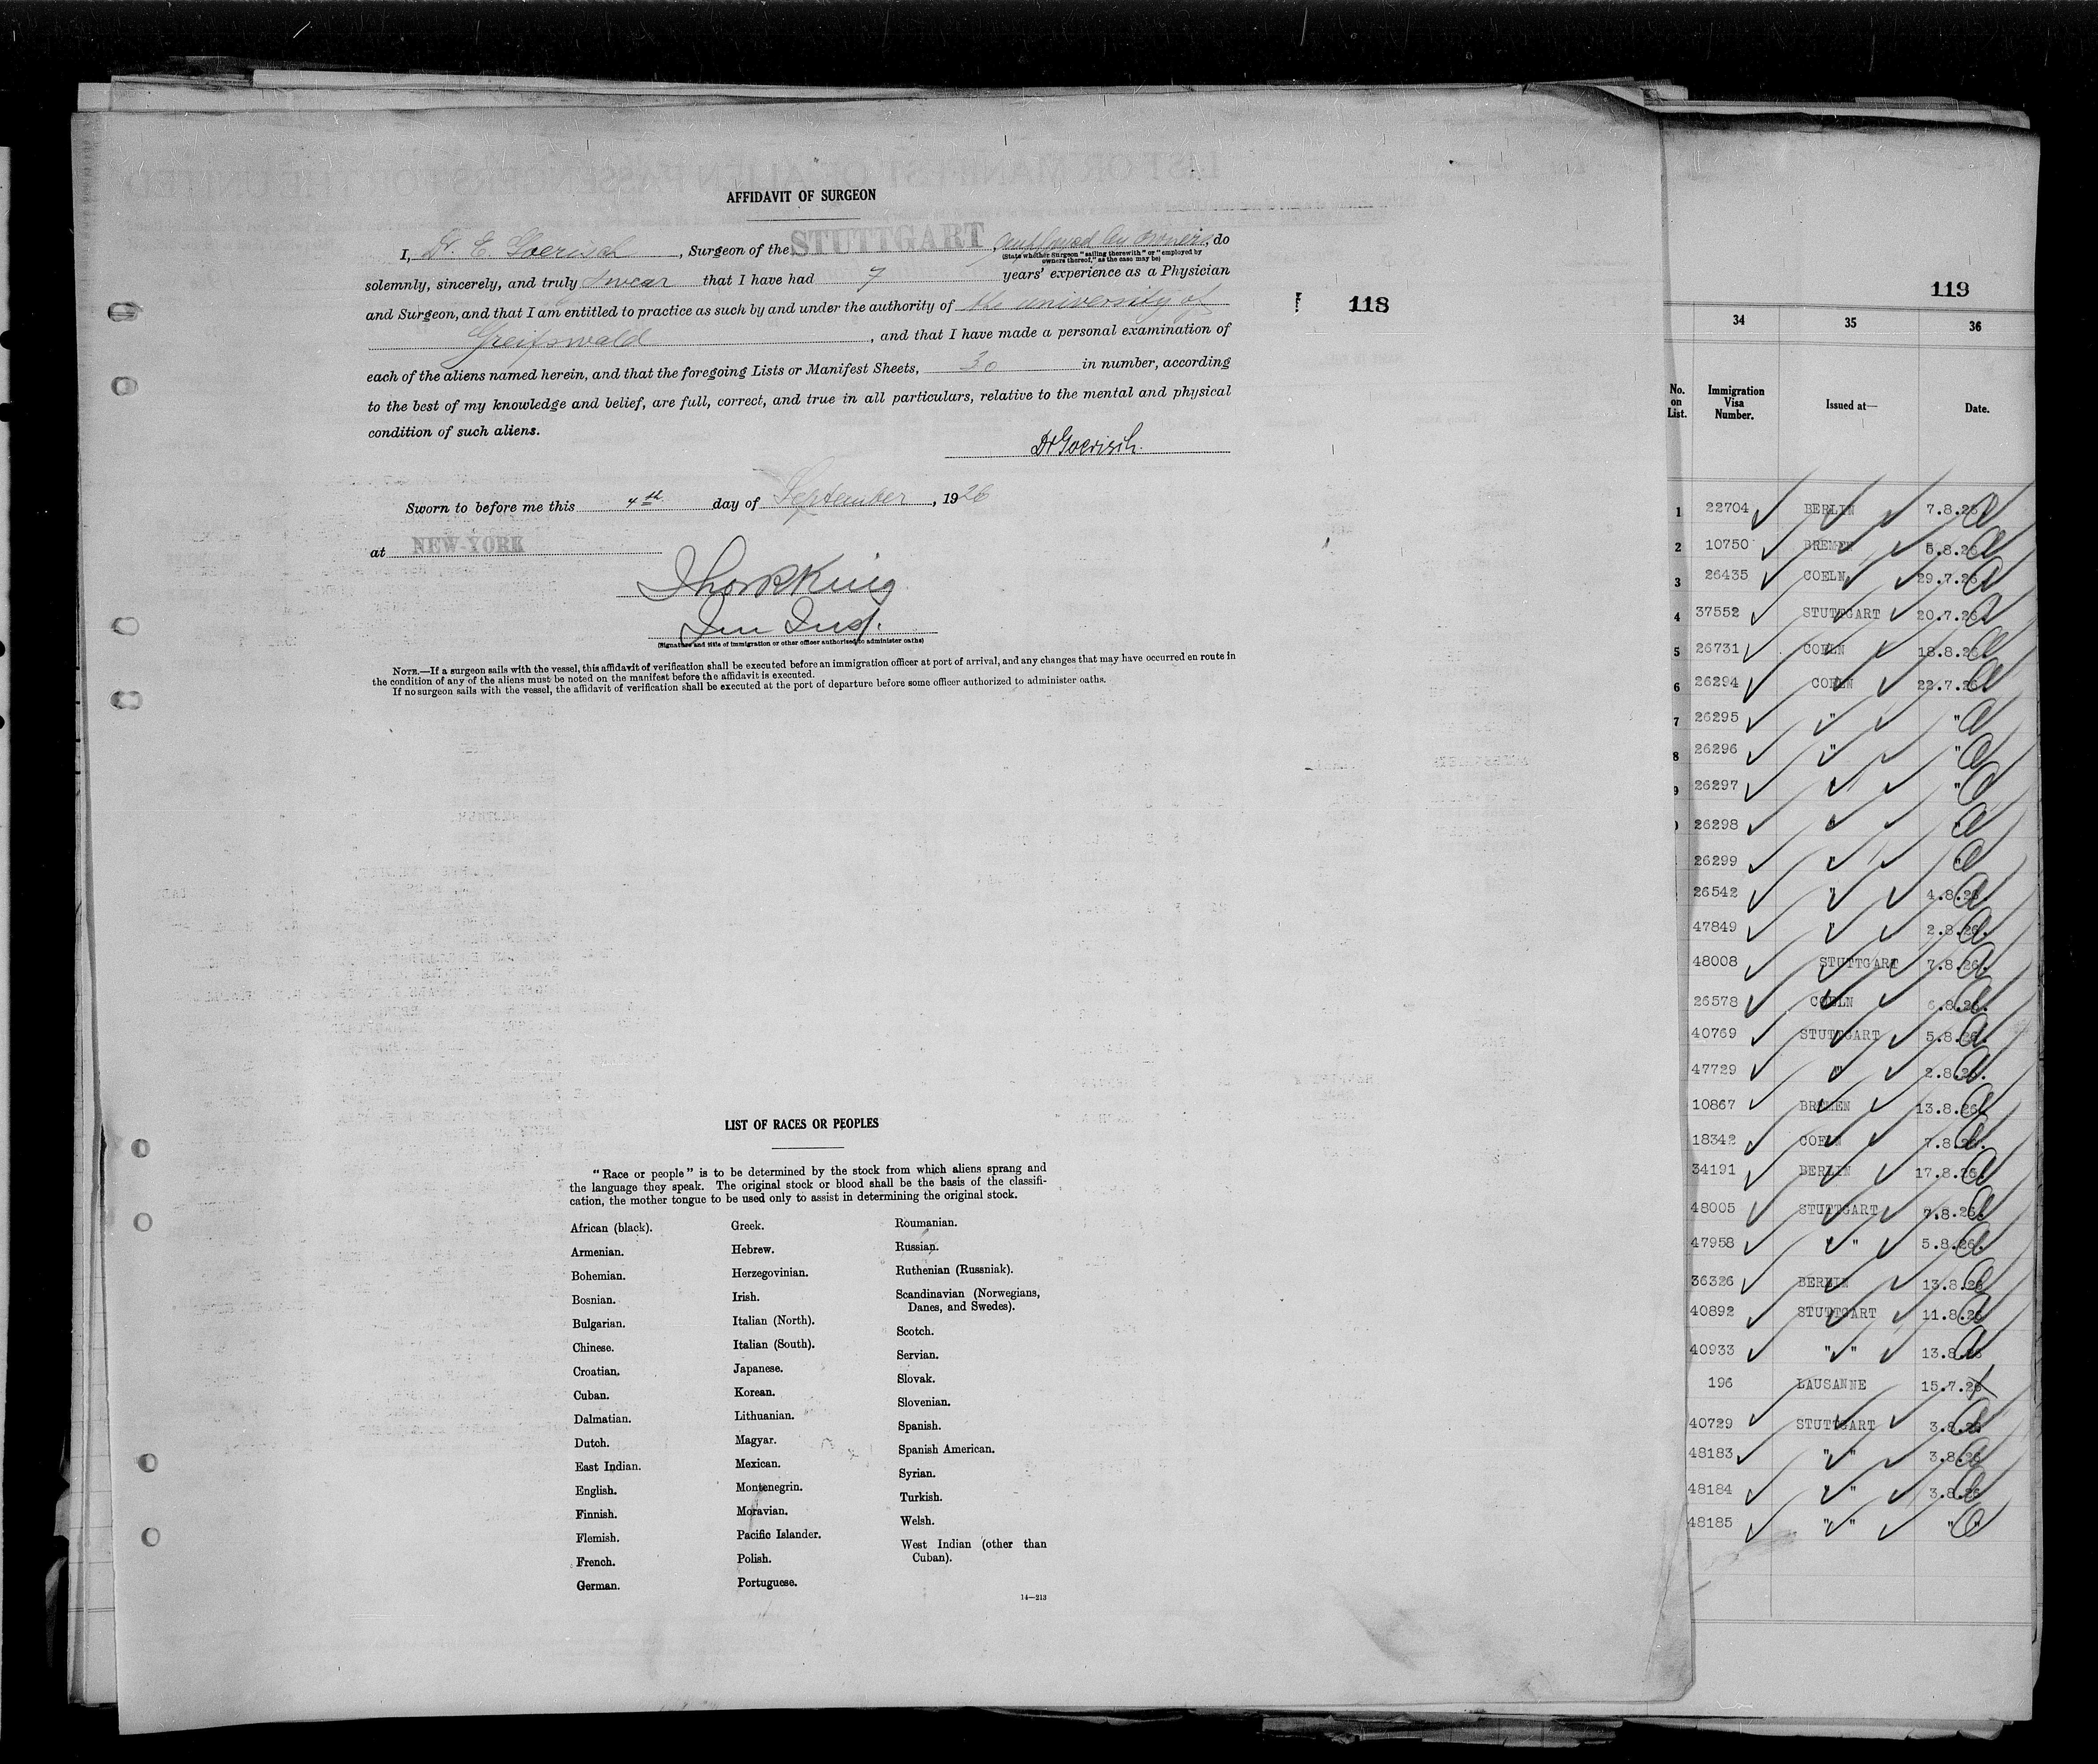 AFFIDAVIT OF SURGEON
I, Dr. E. Goerisch, Surgeon of the STUTTGART, employed by owners, do
(State whether Surgeon "sailing therewith" or "employed by
owners thereof," as the case may be)
solemnly, sincerely, and truly swear that I have had 7 years' experience as a Physician
and Surgeon, and that I am entitled to practice as such by and under the authority of the university of
Greifswald, and that I have made a personal examination of
each of the aliens named herein, and that the foregoing Lists or Manifest Sheets, 30 in number, according
to the best of my knowledge and belief, are full, correct, and true in all particulars, relative to the mental and physical
condition of such aliens.
Dr Goerisch.
Sworn to before me this 4th day of September, 1926
at NEW-YORK
King
Imm Insp.
(Signature and title of immigration or other officer authorized to administer oaths)
NOTE.—If a surgeon sails with the vessel, this affidavit of verification shall be executed before an immigration officer at port of arrival, and any changes that may have occurred en route in
the condition of any of the aliens must be noted on the manifest before the affidavit is executed.
If no surgeon sails with the vessel, the affidavit of verification shall be executed at the port of departure before some officer authorized to administer oaths.
118
LIST OF RACES OR PEOPLES
"Race or people" is to be determined by the stock from which aliens sprang and
the language they speak. The original stock or blood shall be the basis of the classifi-
cation, the mother tongue to be used only to assist in determining the original stock.
African (black).
Armenian.
Bohemian.
Bosnian.
Bulgarian.
Chinese.
Croatian.
Cuban.
Dalmatian.
Dutch.
East Indian.
English.
Finnish.
Flemish.
French.
German.
Greek.
Hebrew.
Herzegovinian.
Irish.
Italian (North).
Italian (South).
Japanese.
Korean.
Lithuanian.
Magyar.
Mexican.
Montenegrin.
Moravian.
Pacific Islander.
Polish.
Portuguese.
Roumanian.
Russian.
Ruthenian (Russniak).
Scandinavian (Norwegians,
Danes, and Swedes).
Scotch.
Servian.
Slovak.
Slovenian.
Spanish.
Spanish American.
Syrian.
Turkish.
Welsh.
West Indian (other than
Cuban).
14—213
119
34 35 36
No. on List. Immigration Visa Number. Issued at— Date.
1 22704 BERLIN 7.8.26
2 10750 BREMEN 5.8.26
3 26435 COELN 29.7.26
4 37552 STUTTGART 20.7.26
5 26731 COELN 18.8.26
6 26294 COELN 22.7.26
7 26295 " "
8 26296 " "
9 26297 " "
26298 " "
26299 " "
26542 " 4.8.26
47849 " 2.8.26.
48008 STUTTGART 7.8.26.
26578 COELN 6.8.26.
40769 STUTTGART 5.8.26.
47729 " 2.8.26.
10867 BREMEN 13.8.26
18342 COELN 7.8.26.
34191 BERLIN 17.8.26
48005 STUTTGART 7.8.26.
47958 " " 5.8.26.
36326 BERLIN 13.8.26
40892 STUTTGART 11.8.26
40933 " " 13.8.26
196 LAUSANNE 15.7.26
40729 STUTTGART 3.8.26
48183 " " 3.8.26
48184 " " 3.8.26
48185 " " " "